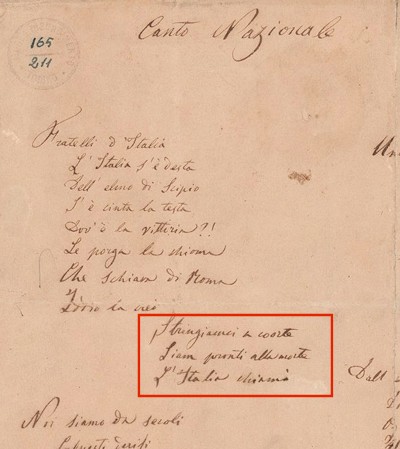 165
211
Canto Nazionale
Fratelli d'Italia
L'Italia s'è desta
Dell'elmo di Scipio
S'è cinta la testa
Dov'è la vittoria?!
Le porga la chioma
Che schiava di Roma
Iddio la creò
Stringiamci a coorte
Siam pronti alla morte
L'Italia chiamò
Noi siamo da secoli